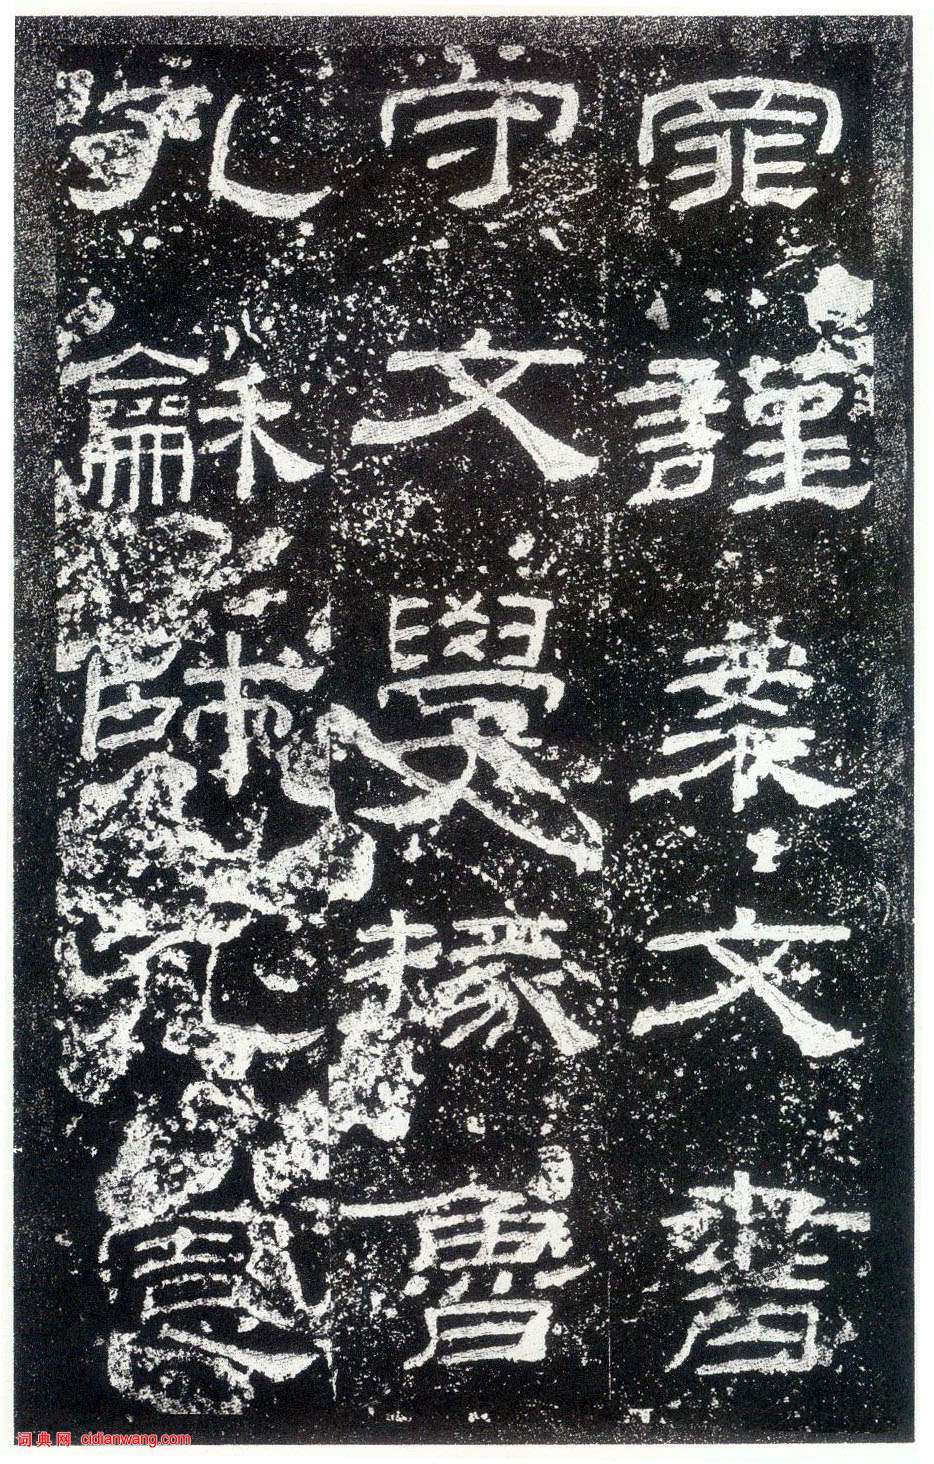 罪謹案文書
守文學掾魯
孔龢師孔憲
词典网 cidianwang.com